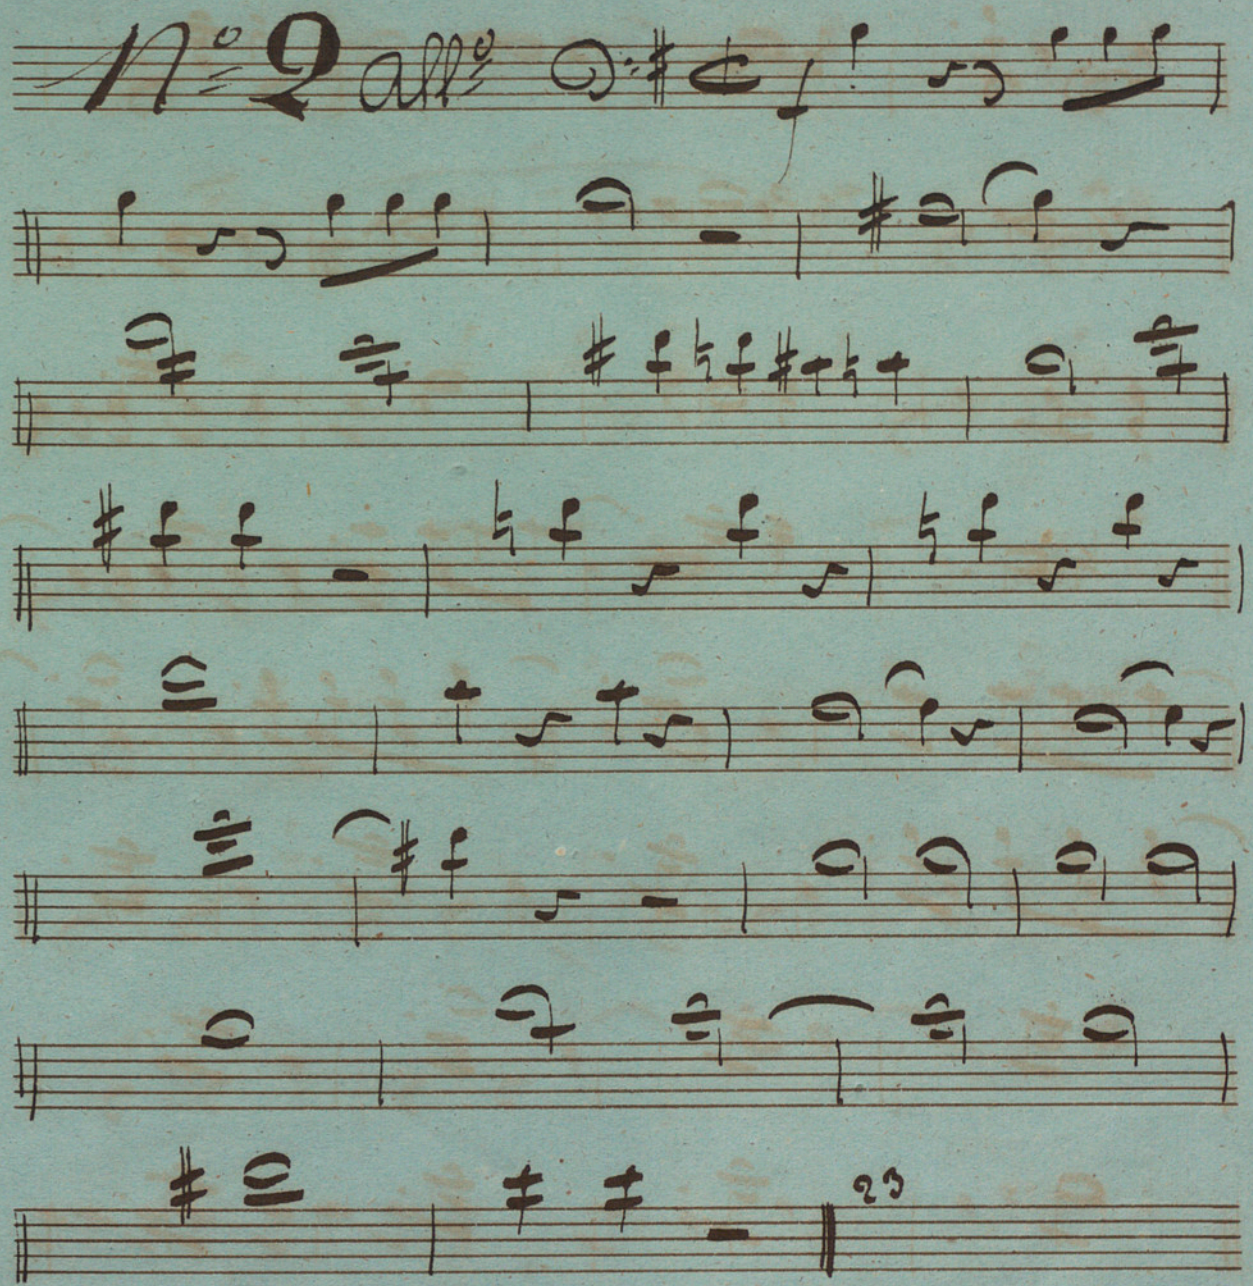 Nº 2 Allº f
23